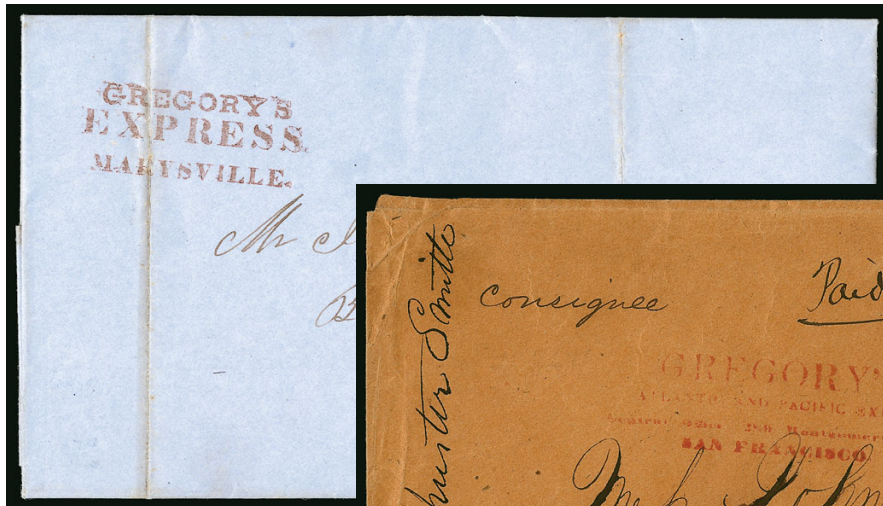 GREGORY'S
EXPRESS.
MARYSVILLE.
Mr
Smith
consignee
Paid
GREGORY'S
ATLANTIC AND PACIFIC EX
288 Montgomer
SAN FRANCISCO
John